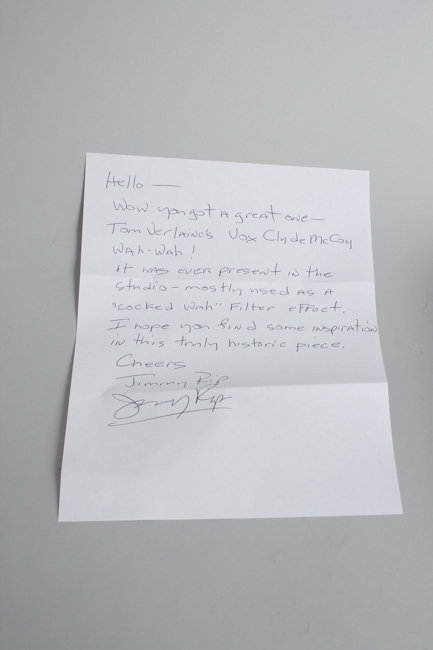 Hello —
Wow you got a great one —
Tom Verlaine's Vox Clyde McCoy
Wah-Wah!
it was ever present in the
studio - mostly used as a
"cocked wah" Filter effect.
I hope you find some inspiration
in this truly historic piece.
Cheers
Jimmy Rip
Jimmy Rip